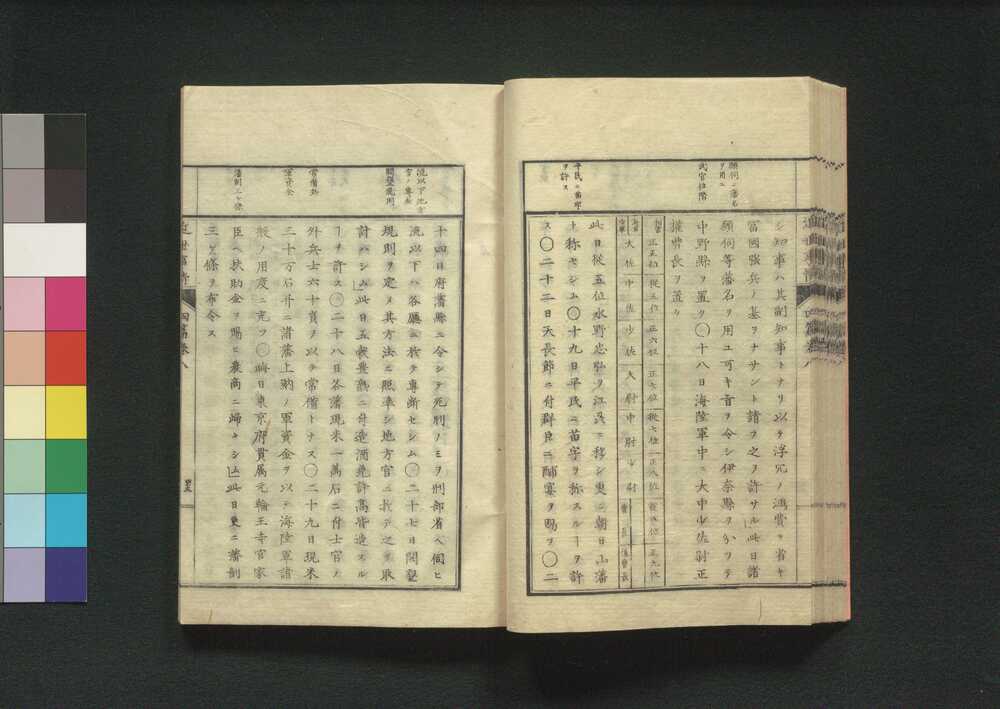 願伺ニ藩名
ヲ用ユ
武官位階
平民ニ苗字
ヲ許ス
シ知事ハ其副知事トナリ以テ浮冗ノ鴻費ヲ省キ
富國強兵ノ基ヲナサント請フ之ヲ許サル此日諸
願伺等藩名ヲ用ユ可キ旨ヲ令シ伊奈縣ヲ分ヲテ
中野縣ヲ置ク〇十八日海陸軍中ニ大中少佐尉正
權曹長ヲ置ク
相當 正五位 從五位 正六位 正七位 從七位 正八位 從八位 正九位
海軍陸軍 大佐 中佐 少佐 大尉 中尉 少尉 曹長 權曹長
此日從五位水野忠弘ヲ江呉ニ移シ更ニ朝日山藩
ト稱セシム〇十九日平民ニ苗字ヲ稱スルヿヲ許
ス〇二十二日天長節ニ付群臣ニ酺宴ヲ賜フ〇二
流以下地方
官ノ專断
開墾規則
常備兵
軍資金
藩制三ヶ條
十四日府藩縣ニ令シテ死刑ノミヲ刑部省ヘ伺ヒ
流以下ハ各廳ニ於テ專断セシム〇二十七日開墾
規則ヲ定メ其方法ニ照準シ地方官ニ於テ之ヲ取
計ハシム此日五穀豊熟ニ付造酒免許高皆造スル
ヿヲ許ス〇二十八日各藩現米一萬石ニ付士官ノ
外兵士六十員ヲ以テ常備トナス〇二十九日現米
三十万石并ニ諸藩上納ノ軍資金ヲ以テ海陸軍諸
般ノ用度ニ充ツ〇晦日東京府貫属元輪王寺官家
臣ヘ扶助金ヲ賜ヒ農商ニ歸セシム此日更ニ藩制
三ヶ條ヲ布令ス